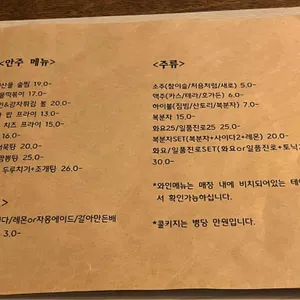 <안주 메뉴>
산물 술찜 19.0-
물떡볶이 17.0-
인&감자튀김 볼 20.0-
립 프라이 13.0-
치즈 프라이 15.0-
16.0-
어묵탕 20.0-
짬뽕탕 25.0-
두루치기+조개탕 26.0-
>
다/레몬or자몽에이드/갈아만든배
3.0-
<주류>
소주(참이슬/처음처럼/새로) 5.0-
맥주(카스/테라/호가든) 6.0-
하이볼(짐빔/산토리/복분자) 7.0-
복분자 15.0-
화요25/일품진로25 25.0-
복분자SET(복분자+사이다2+레몬) 20.0-
화요/일품진로SET(화요or일품진로+토닉
30.0-
*와인메뉴는 매장 내에 비치되어있는 태
서 확인가능하십니다.
*콜키지는 병당 만원입니다.